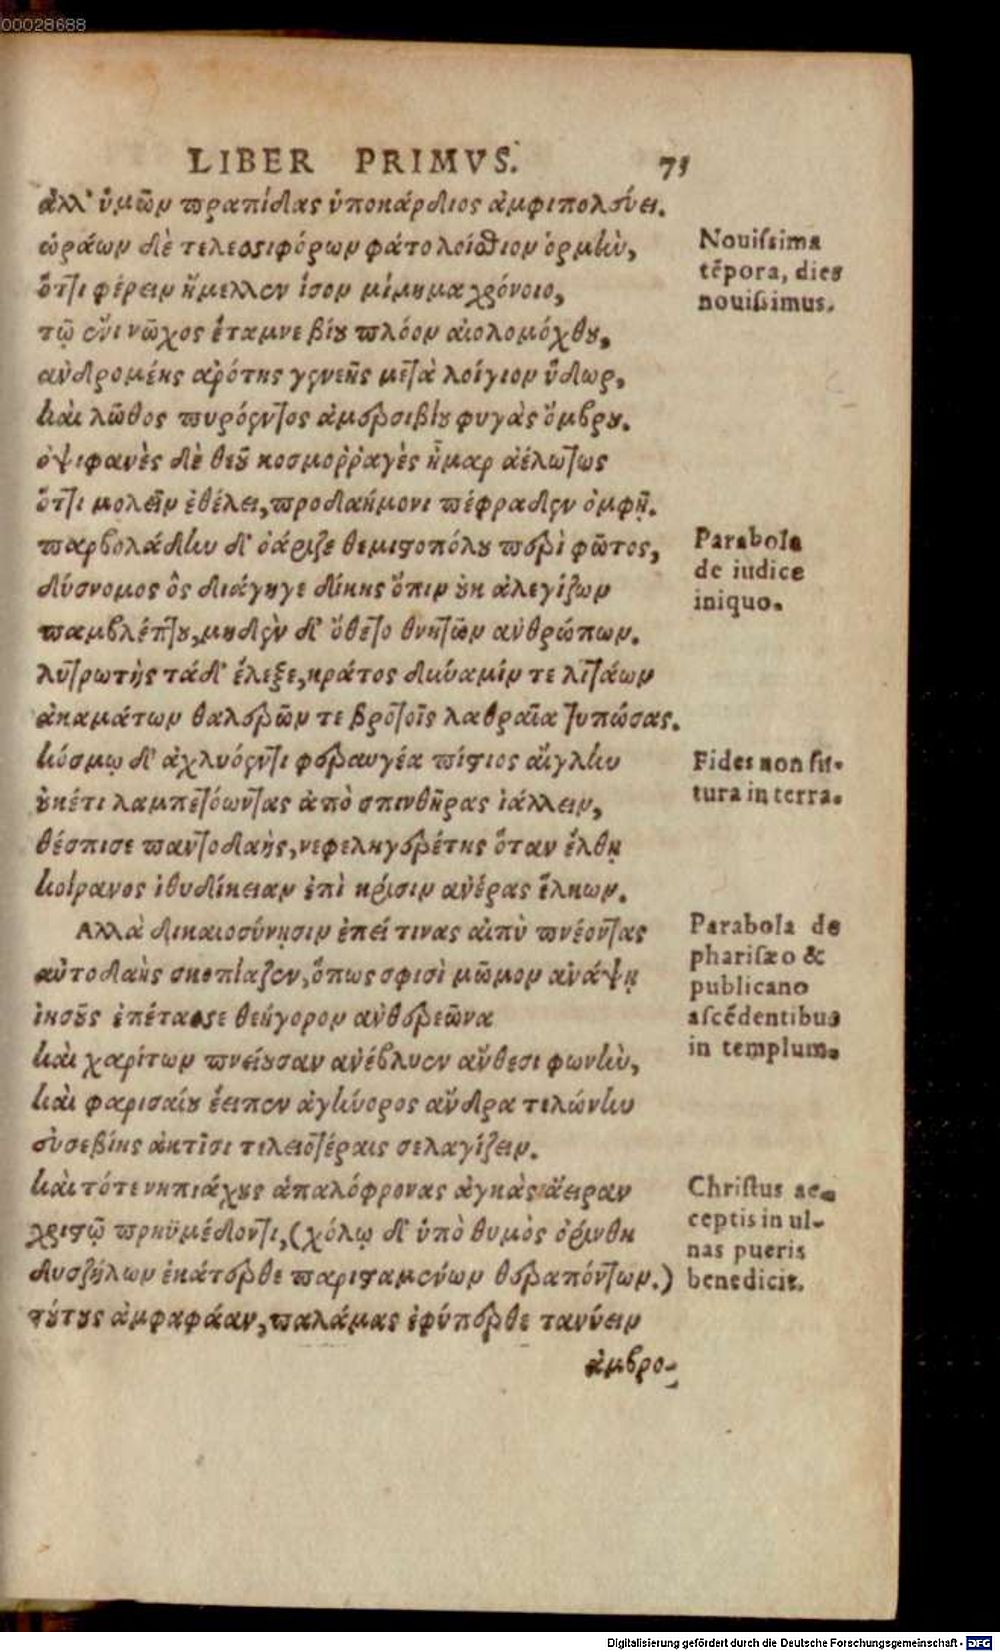 00028688
LIBER PRIMVS. 71
ἀλλ' ὑμῶν πραπίδας ὑποκάρδιος ἀμφιπολεύει.
ὡράων δὲ τελεσσιφόρων φάτο λοίσθιον ὁρμὴν,
ὅττι φέρειν ἤμελλεν ἴσον μίμημα χρόνοιο,
τῷ ἔνι νῶχος ἔταμνε βίου πλόον αἰολομόχθου,
ἀνδρομένης ἀρότης γενεῆς μετὰ λοίγιον ὕδωρ,
καὶ λῶθος πυρόεντος ἀμερσιβίου φυγὰς ὄμβρου.
ὀψιφανὲς δὲ θεοῦ κοσμοῤῥαγὲς ἦμαρ ἀέλπτως
ὅττι μολεῖν ἐθέλει, προδαήμονι πέφραδεν ὀμφῇ.
παρβολάδην δ' ὀάριζε θεμιστοπόλου περὶ φῶτος,
δύσνομος ὃς διάγηγε δίκης ὄπιν οὐκ ἀλεγίζων
παμβλέπτου, μηδὲν δ' ὄθετο θνητῶν ἀνθρώπων.
λυτρωτὴς τάδ' ἔλεξε, κράτος δύναμίν τε λιτάων
ἀκαμάτων θαλερῶν τε βροτοῖς λαθραῖα τυπώσας.
κόσμῳ δ' ἀχλυόεντι φεραυγέα πίστιος αἴγλην
οὐκέτι λαμπετόωντας ἀπὸ σπινθῆρας ἰάλλειν,
θέσπισε παντοδαὴς, νεφεληγερέτης ὅταν ἔλθῃ
κοίρανος ἰθυδίκειαν ἐπὶ κρίσιν ἀνέρας ἕλκων.
Ἀλλὰ δικαιοσύνῃσιν ἐπεί τινας αἰπὺ πνέοντας
αὐτοδαὴς σκοπίαζεν, ὅπως σφισὶ μῶμον ἀνάψῃ
ἰησοῦς ἐπέτασσε θεήγορον ἀνθερεῶνα
καὶ χαρίτων πνείουσαν ἀνέβλυεν ἄνθεσι φωνὴν,
καὶ φαρισαίου ἔειπεν ἀγήνορος ἄνδρα τελώνην
εὐσεβίης ἀκτῖσι τελειοτέραις σελαγίζειν.
καὶ τότε νηπιάχους ἁπαλόφρονας ἀγκὰς ἄειραν
χριστῷ πρηϋμέδοντι, (χόλῳ δ' ὑπὸ θυμὸς ὀρίνθη
δυσζήλων ἑκάτερθε παρισταμένων θεραπόντων.)
τούτους ἀμφαφάαν, παλάμας ἐφύπερθε τανύειν
ἀμβρο-
Nouissima
tẽpora, dies
nouissimus.
Parabola
de iudice
iniquo.
Fides non fu-
tura in terra.
Parabola de
pharisæo &
publicano
ascẽdentibus
in templum.
Christus ac-
ceptis in ul-
nas pueris
benedicit.
Digitalisierung gefördert durch die Deutsche Forschungsgemeinschaft - DFG